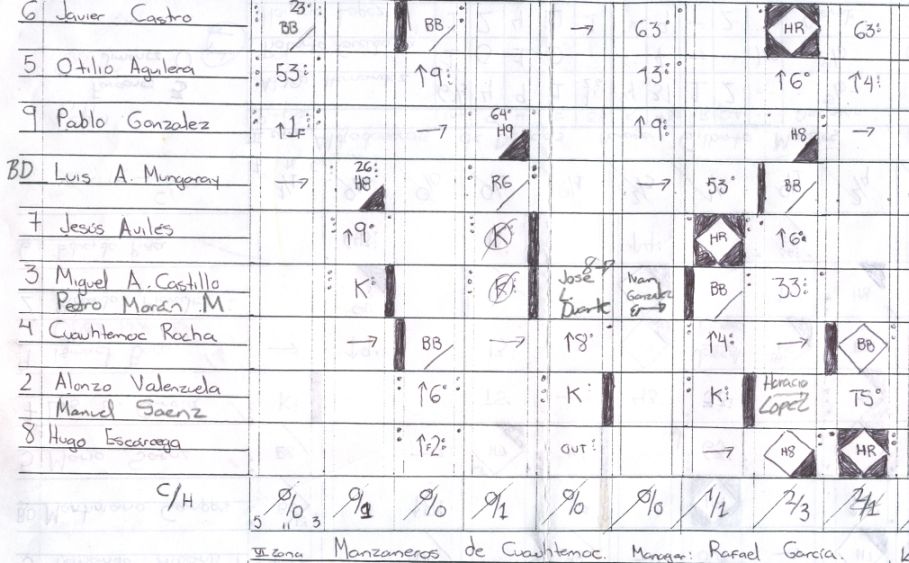 6 Javier Castro 23 BB BB → 63 HR 63
5 Otilio Aguilera 53 ↑9 13 ↑6 ↑4
9 Pablo Gonzalez ↑1F → 64 H9 ↑9 H8 →
BD Luis A. Mungaray → 26 H8 R6 → 53 BB
7 Jesús Aviles ↑9 K HR ↑6
3 Miguel A. Castillo K K José L. Duarte Ivan Gonzalez BB 33
Pedro Morán M
4 Cuauhtemoc Rocha → BB → ↑8 ↑4 → BB
2 Alonzo Valenzuela ↑6 K K Horacio Lopez T5
Manuel Saenz
8 Hugo Escarcega ↑F2 OUT → H8 HR
C/H 0/0 0/1 0/0 0/1 0/0 0/0 1/1 2/3 2/1
5 11 3
VI Zona Manzaneros de Cuauhtemoc. Manager: Rafael García.